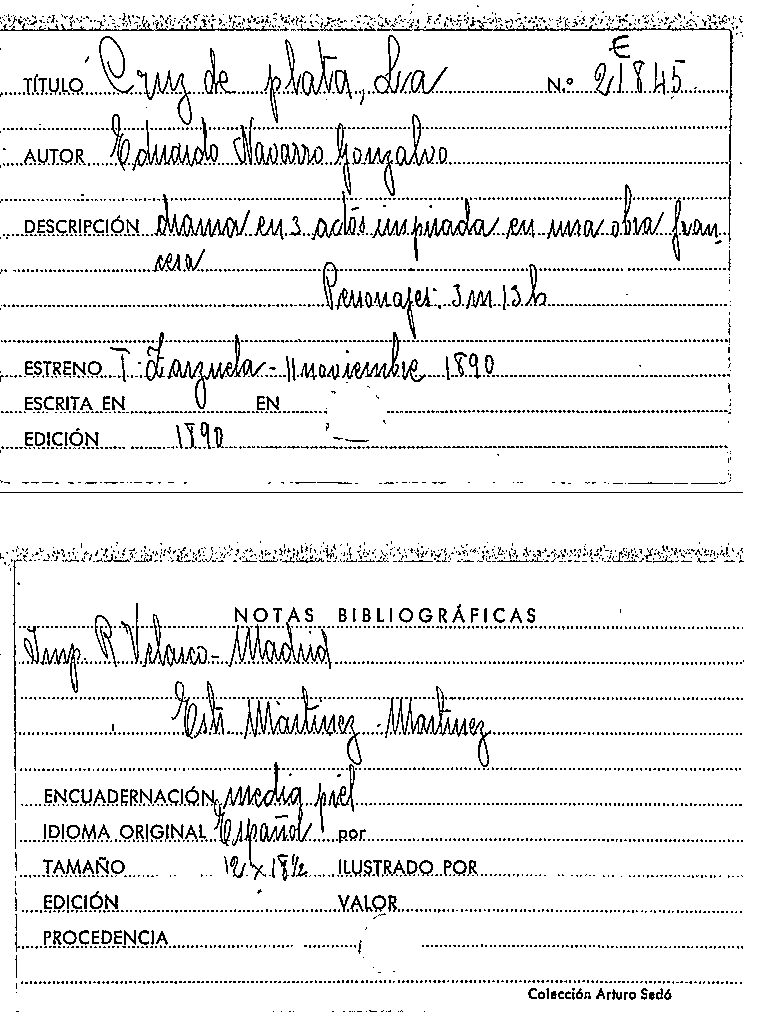 E
TÍTULO Cruz de plata, La N.º 21845
AUTOR Eduardo Navarro Gonzalvo
DESCRIPCIÓN drama en 3 actos inspirada en una obra fran-
cesa
Personajes: 3 m 13 h
ESTRENO T. Zarzuela - 11 noviembre 1890
ESCRITA EN EN
EDICIÓN 1890
NOTAS BIBLIOGRÁFICAS
Imp. R Velasco - Madrid
Estr. Martinez - Martinez
ENCUADERNACIÓN media piel
IDIOMA ORIGINAL Español por
TAMAÑO 12 x 18½ ILUSTRADO POR
EDICIÓN VALOR
PROCEDENCIA
Colección Arturo Sedó